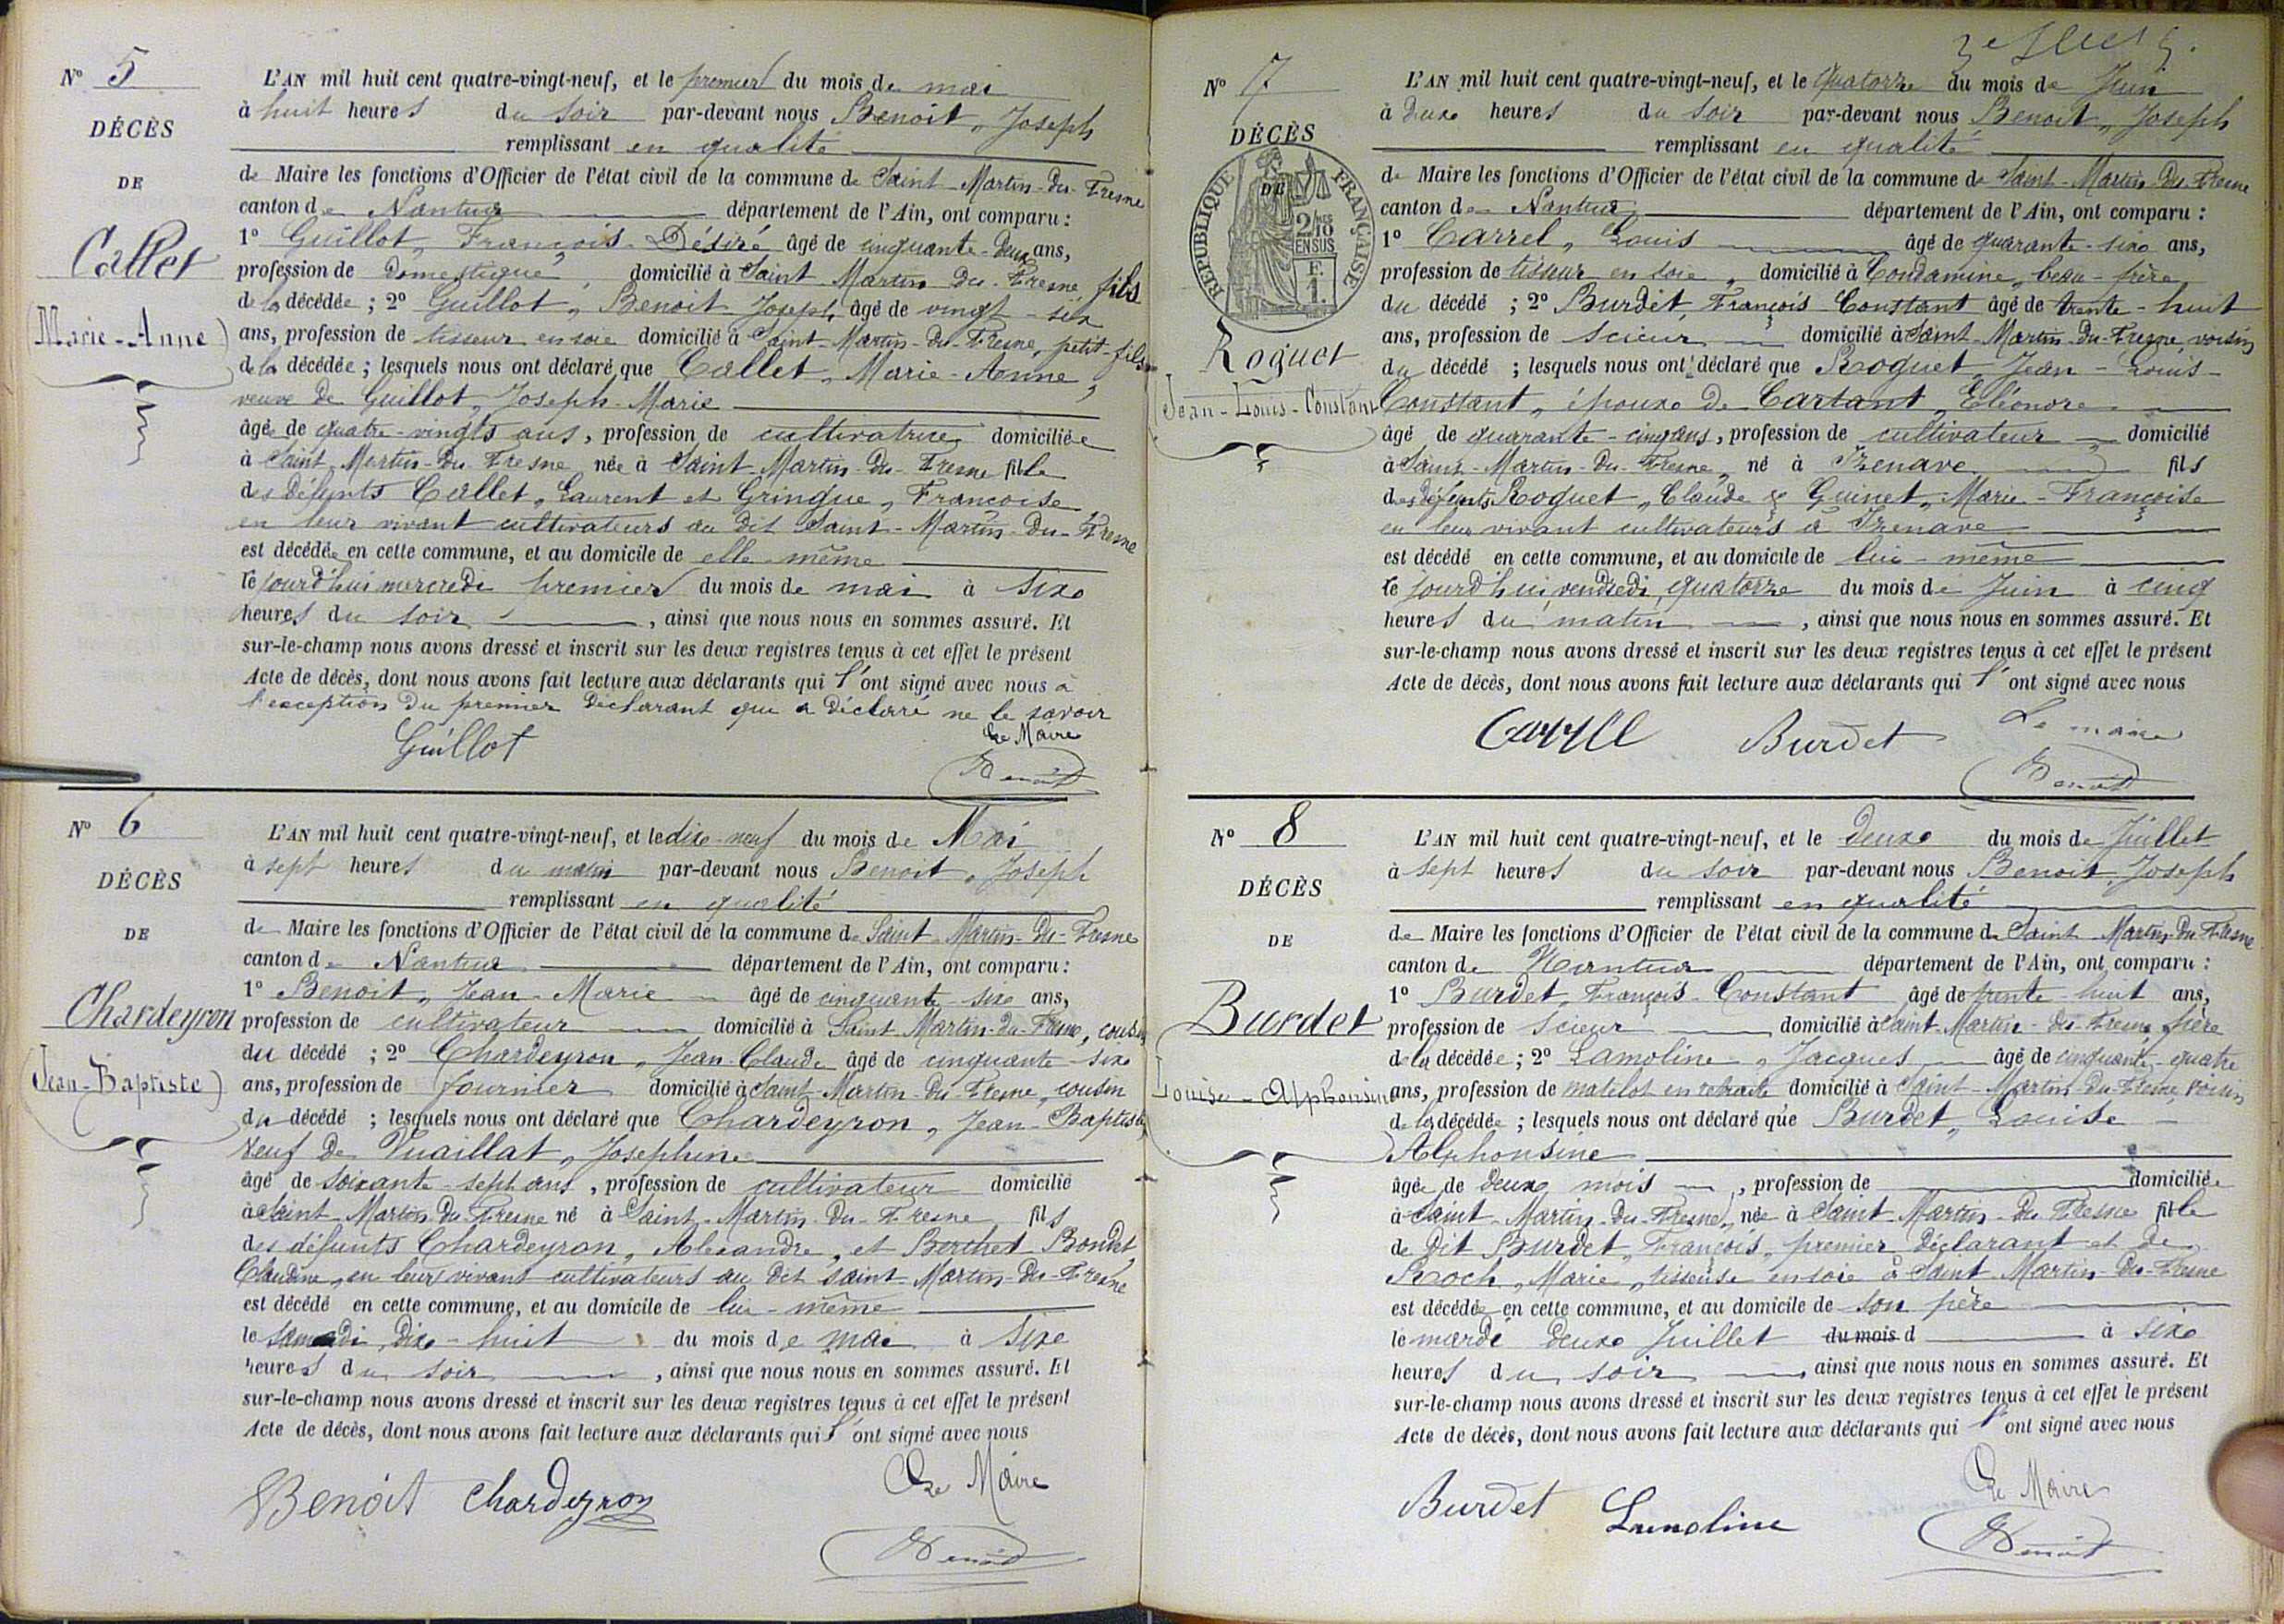 N° 5
DÉCÈS
DE
Callet
(Marie-Anne)
L'AN mil huit cent quatre-vingt-neuf, et le premier du mois de mai
à huit heures du soir par-devant nous Benoit, Joseph
remplissant en qualité
de Maire les fonctions d'Officier de l'état civil de la commune de Saint-Martin-du-Fresne
canton de Nantua département de l'Ain, ont comparu :
1° Guillot, François-Désiré âgé de cinquante-deux ans,
profession de domestique, domicilié à Saint-Martin-du-Fresne, fils
de la décédée ; 2° Guillot, Benoit-Joseph, âgé de vingt-six
ans, profession de tisseur en soie domicilié à Saint-Martin-du-Fresne, petit-fils
de la décédée ; lesquels nous ont déclaré que Callet, Marie-Anne,
veuve de Guillot, Joseph-Marie
âgée de quatre-vingts ans, profession de cultivatrice domiciliée
à Saint-Martin-du-Fresne, née à Saint-Martin-du-Fresne fille
des défunts Callet, Laurent et Gringue, Françoise
en leur vivant cultivateurs au dit Saint-Martin-du-Fresne
est décédée en cette commune, et au domicile de elle-même
le jourd'hui mercredi premier du mois de mai à six
heures du soir, ainsi que nous nous en sommes assuré. Et
sur-le-champ nous avons dressé et inscrit sur les deux registres tenus à cet effet le présent
Acte de décès, dont nous avons fait lecture aux déclarants qui l'ont signé avec nous à
l'exception du premier déclarant qui a déclaré ne le savoir
Le Maire
Guillot
Benoit
N° 6
DÉCÈS
DE
Chardeyron
(Jean-Baptiste)
L'AN mil huit cent quatre-vingt-neuf, et le dix-neuf du mois de Mai
à sept heures du matin par-devant nous Benoit, Joseph
remplissant en qualité
de Maire les fonctions d'Officier de l'état civil de la commune de Saint-Martin-du-Fresne
canton de Nantua département de l'Ain, ont comparu :
1° Benoit, Jean-Marie âgé de cinquante-six ans,
profession de cultivateur domicilié à Saint-Martin-du-Fresne, cousin
du décédé ; 2° Chardeyron, Jean-Claude âgé de cinquante-six
ans, profession de fournier domicilié à Saint-Martin-du-Fresne, cousin
du décédé ; lesquels nous ont déclaré que Chardeyron, Jean-Baptiste,
veuf de Vuaillat, Josephine
âgé de soixante-sept ans, profession de cultivateur domicilié
à Saint-Martin-du-Fresne né à Saint-Martin-du-Fresne fils
des défunts Chardeyron, Alexandre, et Berthet-Bondet,
Claudine, en leurs vivant cultivateurs au dit Saint-Martin-du-Fresne
est décédé en cette commune, et au domicile de lui-même
le samedi dix-huit du mois de mai à six
heures du soir, ainsi que nous nous en sommes assuré. Et
sur-le-champ nous avons dressé et inscrit sur les deux registres tenus à cet effet le présent
Acte de décès, dont nous avons fait lecture aux déclarants qui l'ont signé avec nous
Le Maire
Benoit Chardeyron
Benoit
N° 7
DÉCÈS
DE
RÉPUBLIQUE FRANÇAISE
2/10 EN SUS
F. 1.
Roguet
Jean-Louis-Constant
L'AN mil huit cent quatre-vingt-neuf, et le quatorze du mois de Juin
à deux heures du soir par-devant nous Benoit, Joseph
remplissant en qualité
de Maire les fonctions d'Officier de l'état civil de la commune de Saint-Martin-du-Fresne
canton de Nantua département de l'Ain, ont comparu :
1° Carrel, Louis âgé de quarante-six ans,
profession de tisseur en soie, domicilié à Condamine, beau-frère
du décédé ; 2° Burdet, François Constant âgé de trente-huit
ans, profession de scieur domicilié à Saint-Martin-du-Fresne, voisin
du décédé ; lesquels nous ont déclaré que Roguet, Jean-Louis-
Constant, époux de Cartant, Eléonore
âgé de quarante-cinq ans, profession de cultivateur domicilié
à Saint-Martin-du-Fresne, né à Izenave fils
des défunts Roguet, Claude & Guinet, Marie-Françoise
en leur vivant cultivateurs à Izenave
est décédé en cette commune, et au domicile de lui-même
le jourd'hui, vendredi, quatorze du mois de Juin à cinq
heures du matin, ainsi que nous nous en sommes assuré. Et
sur-le-champ nous avons dressé et inscrit sur les deux registres tenus à cet effet le présent
Acte de décès, dont nous avons fait lecture aux déclarants qui l'ont signé avec nous
Le maire
Burdet
Benoit
N° 8
DÉCÈS
DE
Burdet
Louise-Alphonsine
L'AN mil huit cent quatre-vingt-neuf, et le deux du mois de Juillet
à sept heures du soir par-devant nous Benoit, Joseph
remplissant en qualité
de Maire les fonctions d'Officier de l'état civil de la commune de Saint-Martin-du-Fresne
canton de Nantua département de l'Ain, ont comparu :
1° Burdet, François-Constant âgé de trente-huit ans,
profession de scieur domicilié à Saint-Martin-du-Fresne, père
de la décédée ; 2° Lamoline, Jacques âgé de cinquante-quatre
ans, profession de matelot en retraite domicilié à Saint-Martin-du-Fresne, voisin
de la décédée ; lesquels nous ont déclaré que Burdet, Louise-
Alphonsine
âgée de deux mois, profession de domiciliée
à Saint-Martin-du-Fresne, née à Saint-Martin-du-Fresne fille
de dit Burdet, François, premier déclarant et de
Roch, Marie, tisseuse en soie à Saint-Martin-du-Fresne
est décédée en cette commune, et au domicile de son père
le mardi deux Juillet du mois d à six
heures du soir, ainsi que nous nous en sommes assuré. Et
sur-le-champ nous avons dressé et inscrit sur les deux registres tenus à cet effet le présent
Acte de décès, dont nous avons fait lecture aux déclarants qui l'ont signé avec nous
Le Maire
Burdet Lamoline
Benoit